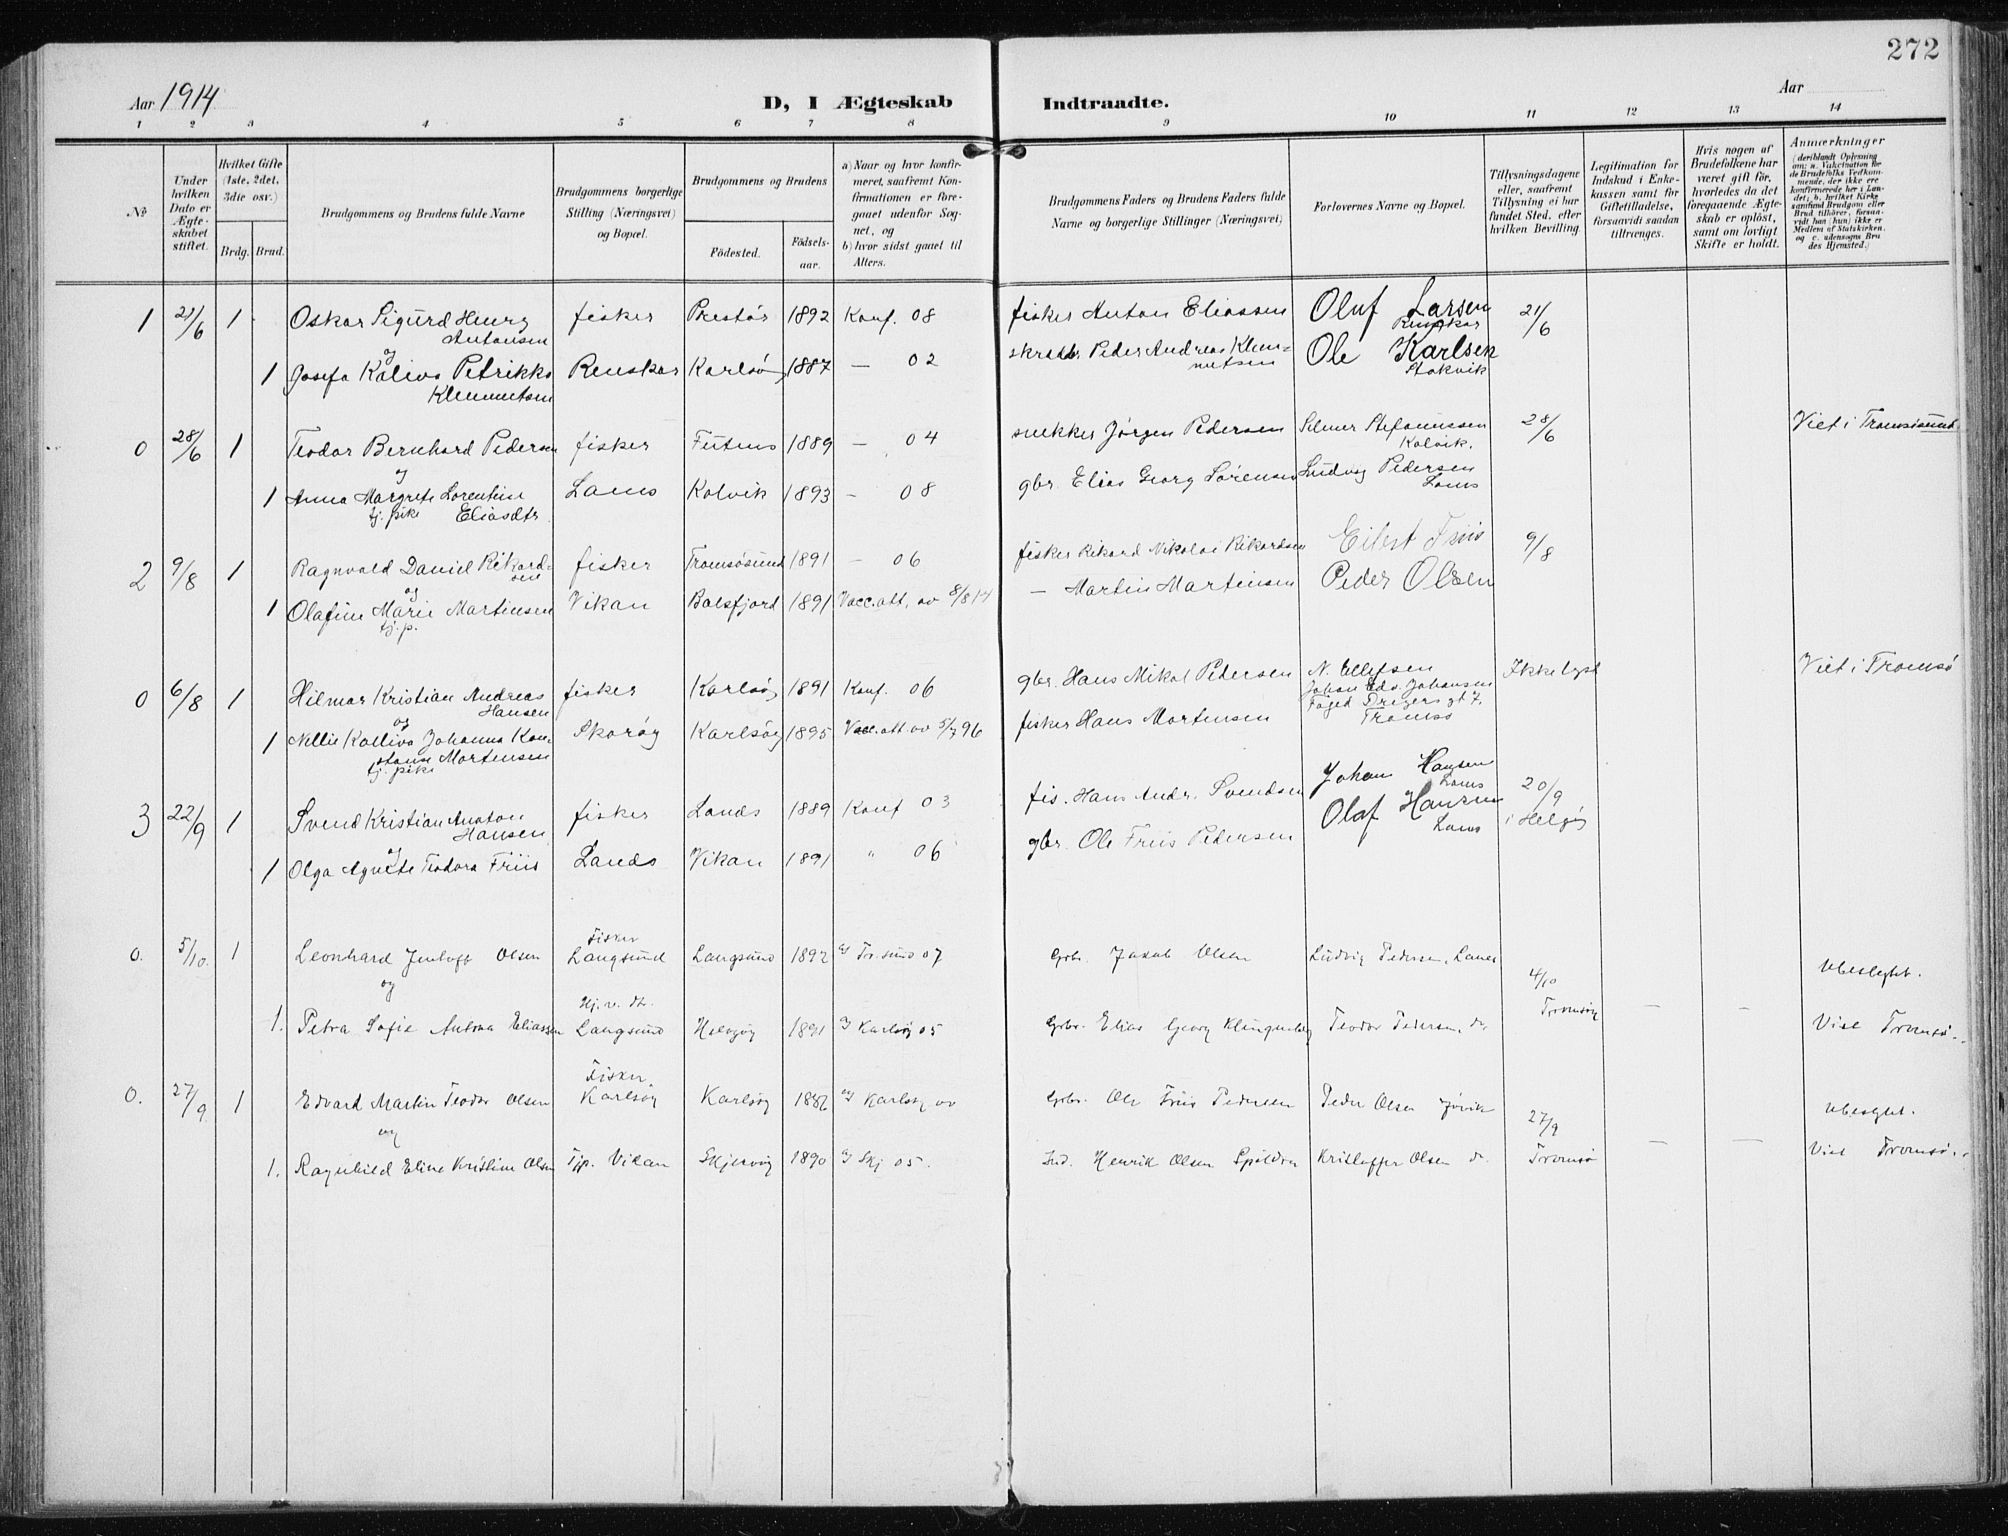 272
Aar 1914
Aar
D, I Ægteskab Indtraadte.
1 2 3 4 5 6 7 8 9 10 11 12 13 14
No
Under hvilken Dato er Ægteskabet stiftet.
Hvilket Gifte (1ste, 2det, 3die osv.)
Brdg. Brud.
Brudgommens og Brudens fulde Navne
Brudgommens borgerlige Stilling (Næringsvei) og Bopæl.
Brudgommens og Brudens
Fødested. Fødsels-aar.
a) Naar og hvor konfirmeret, saafremt Konfirmationen er foregaaet udenfor Sognet, og
b) hvor sidst gaaet til Alters.
Brudgommens Faders og Brudens Faders fulde Navne og borgerlige Stillinger (Næringsvei)
Forlovernes Navne og Bopæl.
Tillysningsdagene eller, saafremt Tillysning ei har fundet Sted, efter hvilken Bevilling.
Legitimation for Indskud i Enkekassen samt for Giftetilladelse, forsaavidt saadan tiltrænges.
Hvis nogen af Brudefolkene har været gift før, hvorledes da det foregaaende Ægteskab er opløst, samt om lovligt Skifte er holdt.
Anmærkninger
(deriblandt Oplysning om: a. Vakcination for de Brudefolks Vedkommende, der ikke ere konfirmerede her i Landet; b. hvilket Kirkesamfund Brudgom eller Brud tilhører, forsaavidt han (hun) ikke er Medlem af Statskirken, og c. udensogns Brudes Hjemsted.)
1 21/6 1 Oskar Sigurd Henry Antonsen fisker Prestør 1892 Konf. 08 fisker Anton Eliassen Oluf Larsen Renskar 21/6
og
1 Josefa Kaliva Petrikke Klemmetsen Renskar Karlsøy 1887 — 02 Peder Andreas Klemmetsen Ole Karlsen Stakvik
0 28/6 1 Teodor Bernhard Pedersen fisker Futens 1889 — 04 snekker Jørgen Pedersen Selmer Stefanussen Kalvik. 28/6 Viet i Tromsøsund
og
1 Anna Margrete Lorentine Eliasdtr tj. pike Lans Kolvik 1893 — 08 gbr. Elias Georg Sørensen Ludvig Pedersen Lans
2 9/8 1 Ragnvald Daniel Rikardsen fisker Tromsøsund 1891 — 06 fisker Rikard Nikolai Rikardsen Eilert Friis 9/8
og
1 Olafine Marie Martinsen tj. p. Vikan Balsfjord 1891 Vacc.att. av 8/8 14 — Martin Martinsen Peder Olsen
0 6/8 1 Hilmar Kristian Andreas Hansen fisker Karlsøy 1891 Konf. 06 gbr. Hans Mikal Pedersen N. Ellefsen Ikke lyst Viet i Tromsø
og
1 Nellie Kaliva Johanna Konstanse Mortensen tj. pike Skorøy Karlsøy 1895 Vacc.att av 5/7 96 fisker Hans Mortensen Johan Edv. Johansen Foged Dreyers gt 7. Tromsø
3 22/9 1 Svend Kristian Anton Hansen fisker Lands 1889 Konf 03 fis. Hans Andr. Svendsen Johan Hansen Lans 20/9 i Helgøy
og
1 Olga Agnete Teodora Friis Lands Vikan 1891 " 06 gbr. Ole Friis Pedersen Olaf Hansen Lans
0. 5/10. 1 Leonhard Olsen Fisker Langsund Langsund 1892 Tr.sund 07 Gbr. Jakob Olsen Ludvig Pedersen, Lanes 4/10 Ubeslegtet.
og
1. Petra Sofie Antona Eliassen Hj.v. dtr. Langsund Helgøy 1891 Karlsøy 05 Gbr. Elias Georg Klingenberg Teodor Pedersen, do Tromsøy — — Viet Tromsø..
0. 27/9. 1 Edvard Martin Teodor Olsen Fisker. Karlsøy Karlsøy 1882 Karlsøy Gbr. Ole Friis Pedersen Peder Olsen Jøvik 27/9 Ubeslegt.
og
1. Ragnhild Eline Kristine Olsen Tjp. Vikan Skjervøy 1890 Skj 05. Ind. Henrik Olsen Spilder Kristoffer Olsen do. Tromsø — — Viet Tromsø..